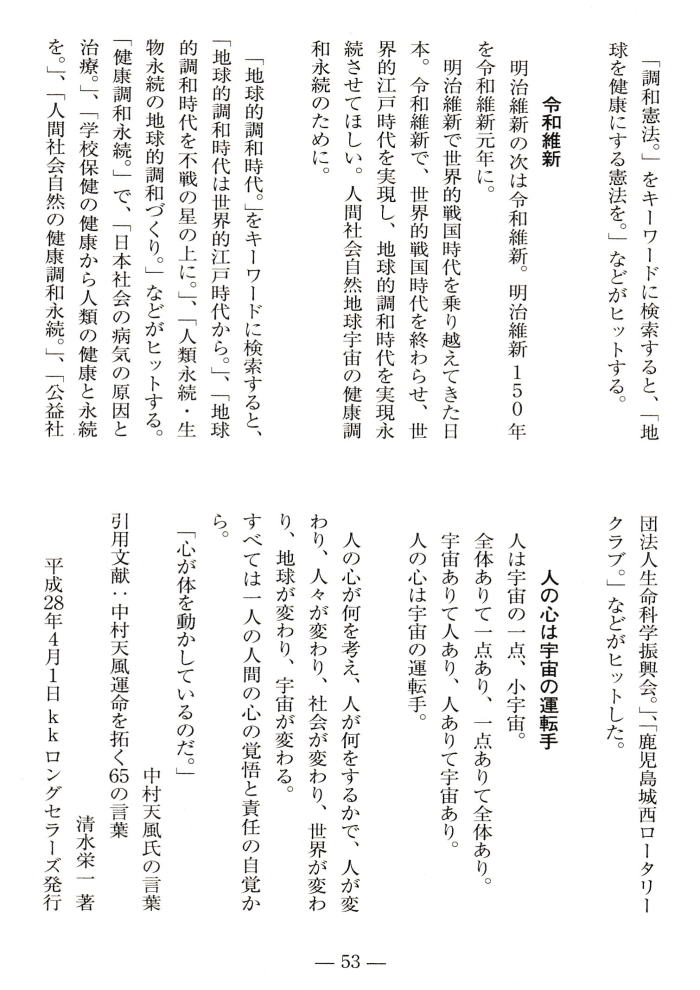 「調和憲法。」をキーワードに検索すると、「地
球を健康にする憲法を。」などがヒットする。
令和維新
明治維新の次は令和維新。明治維新150年
を令和維新元年に。
明治維新で世界的戦国時代を乗り越えてきた日
本。令和維新で、世界的戦国時代を終わらせ、世
界的江戸時代を実現し、地球的調和時代を実現永
続させてほしい。人間社会自然地球宇宙の健康調
和永続のために。
「地球的調和時代。」をキーワードに検索すると、
「地球的調和時代は世界的江戸時代から。」、「地球
的調和時代を不戦の星の上に。」、「人類永続・生
物永続の地球的調和づくり。」などがヒットする。
「健康調和永続。」で、「日本社会の病気の原因と
治療。」、「学校保健の健康から人類の健康と永続
を。」、「人間社会自然の健康調和永続。」、「公益社
団法人生命科学振興会。」、「鹿児島城西ロータリー
クラブ。」などがヒットした。
人の心は宇宙の運転手
人は宇宙の一点、小宇宙。
全体ありて一点あり、一点ありて全体あり。
宇宙ありて人あり、人ありて宇宙あり。
人の心は宇宙の運転手。
人の心が何を考え、人が何をするかで、人が変
わり、人々が変わり、社会が変わり、世界が変わ
り、地球が変わり、宇宙が変わる。
すべては一人の人間の心の覚悟と責任の自覚か
ら。
「心が体を動かしているのだ。」
中村天風氏の言葉
引用文献：中村天風運命を拓く65の言葉
清水栄一著
平成28年4月1日kkロングセラーズ発行
— 53 —